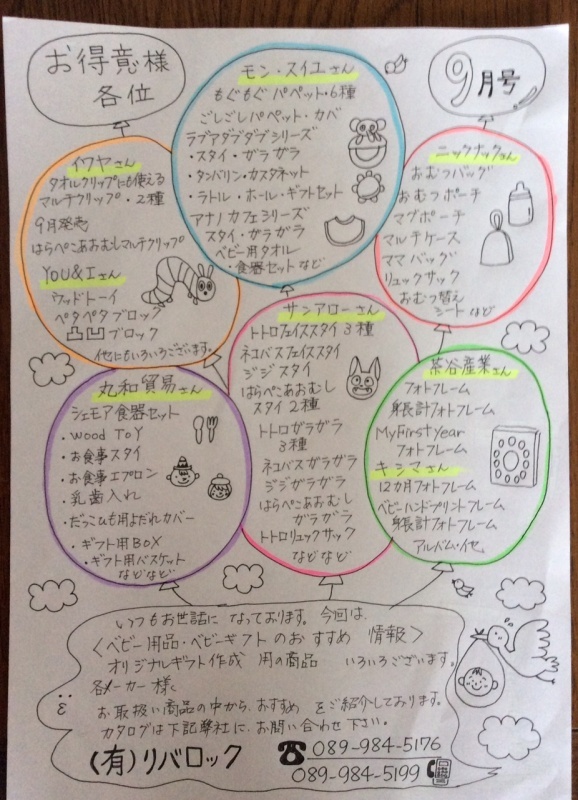 お得意様
各位
9月号
モン・スイユさん
もぐもぐパペット・6種
ごしごしパペット・カバ
ラブアダブダブシリーズ
・スタイ・ガラガラ
・タンバリン・カスタネット
・ラトル・ホール・ギフトセット
アナノカフェシリーズ
スタイ・ガラガラ
ベビー用タオル
・食器セットなど
イワヤさん
タオルクリップにも使える
マルチクリップ・2種
9月発売
はらぺこあおむしマルチクリップ
YOU&Iさん
ウッドトーイ
ペタペタブロック
凸凹ブロック
他にもいろいろございます。
ニックナックさん
おむつバッグ
おむつポーチ
マグポーチ
マルチケース
ママバッグ
リュックサック
おむつ替え
シートなど
サンアローさん
トトロフェイススタイ3種
ネコバスフェイススタイ
ジジスタイ
はらぺこあおむし
スタイ2種
トトロガラガラ
3種
ネコバスガラガラ
ジジガラガラ
はらぺこあおむし
ガラガラ
トトロリュックサック
などなど
丸和貿易さん
シェモア食器セット
・wood ToY
・お食事スタイ
・お食事エプロン
・乳歯入れ
・だっこひも用よだれカバー
・ギフト用BOX
・ギフト用バスケット
などなど
茶谷産業さん
フォトフレーム
身長計フォトフレーム
My First year
フォトフレーム
キシマさん
12カ月フォトフレーム
ベビーハンドプリントフレーム
身長計フォトフレーム
アルバム・他
いつもお世話になっております。今回は、
〈ベビー用品・ベビーギフトのおすすめ 情報〉
オリジナルギフト作成 用の商品 いろいろございます。
各メーカー様く
お取扱い商品の中から、おすすめ をご紹介しております。
カタログは下記弊社に、お問い合わせ下さい。
(有)リバロック
☎089-984-5176
089-984-5199